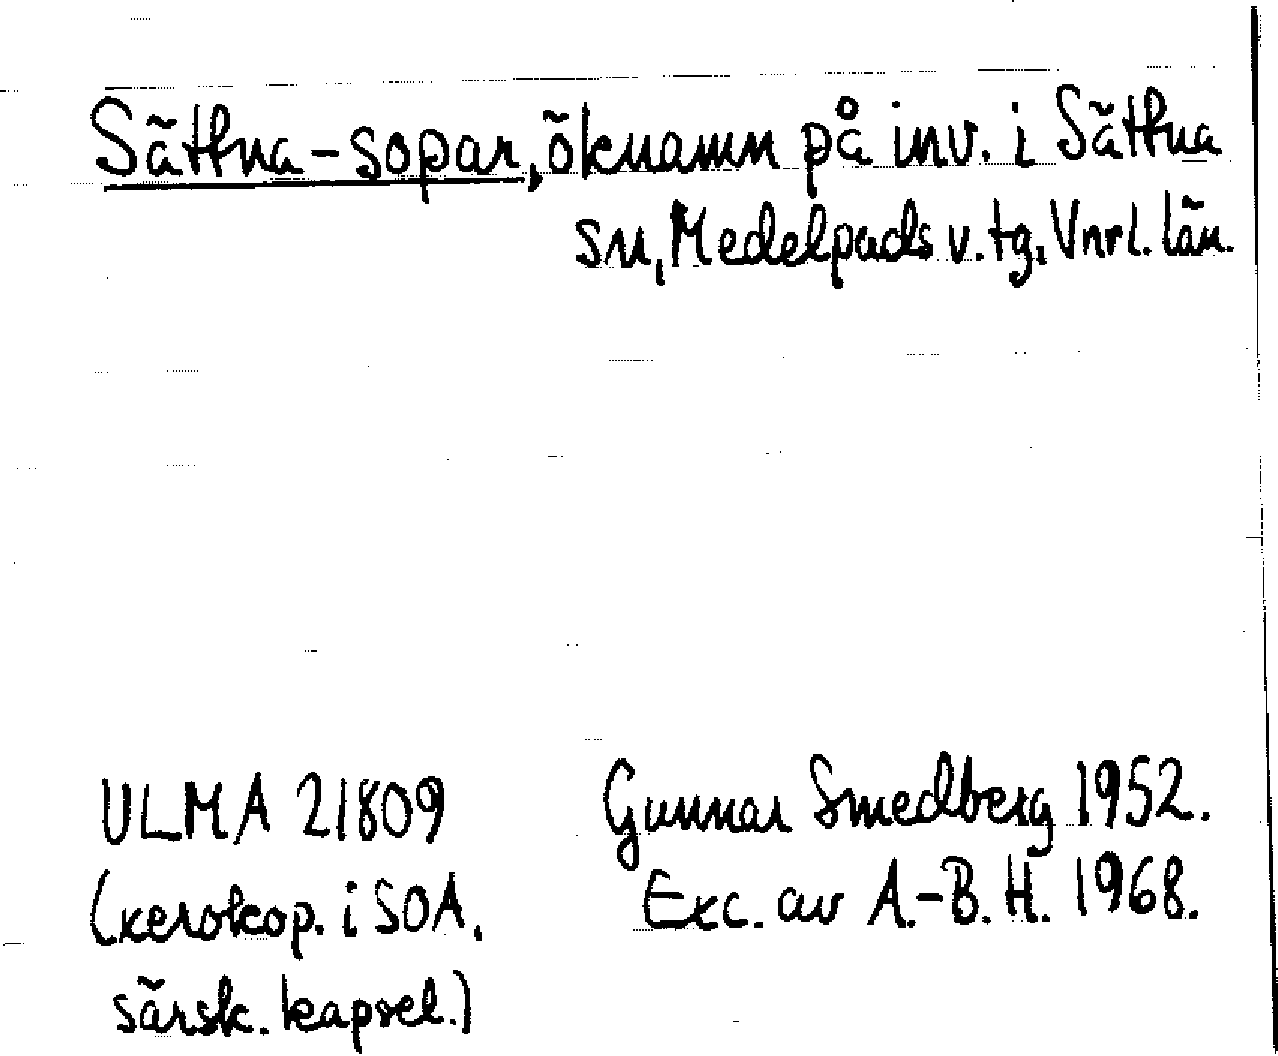 Sättna-sopar, öknamn på inv. i Sättna
sn, Medelpads v. tg, Vnrl. län.
ULMA 21809
(xerokop. i SOA,
särsk. kapsel.)
Gunnar Smedberg 1952.
Exc. av A.-B. H. 1968.